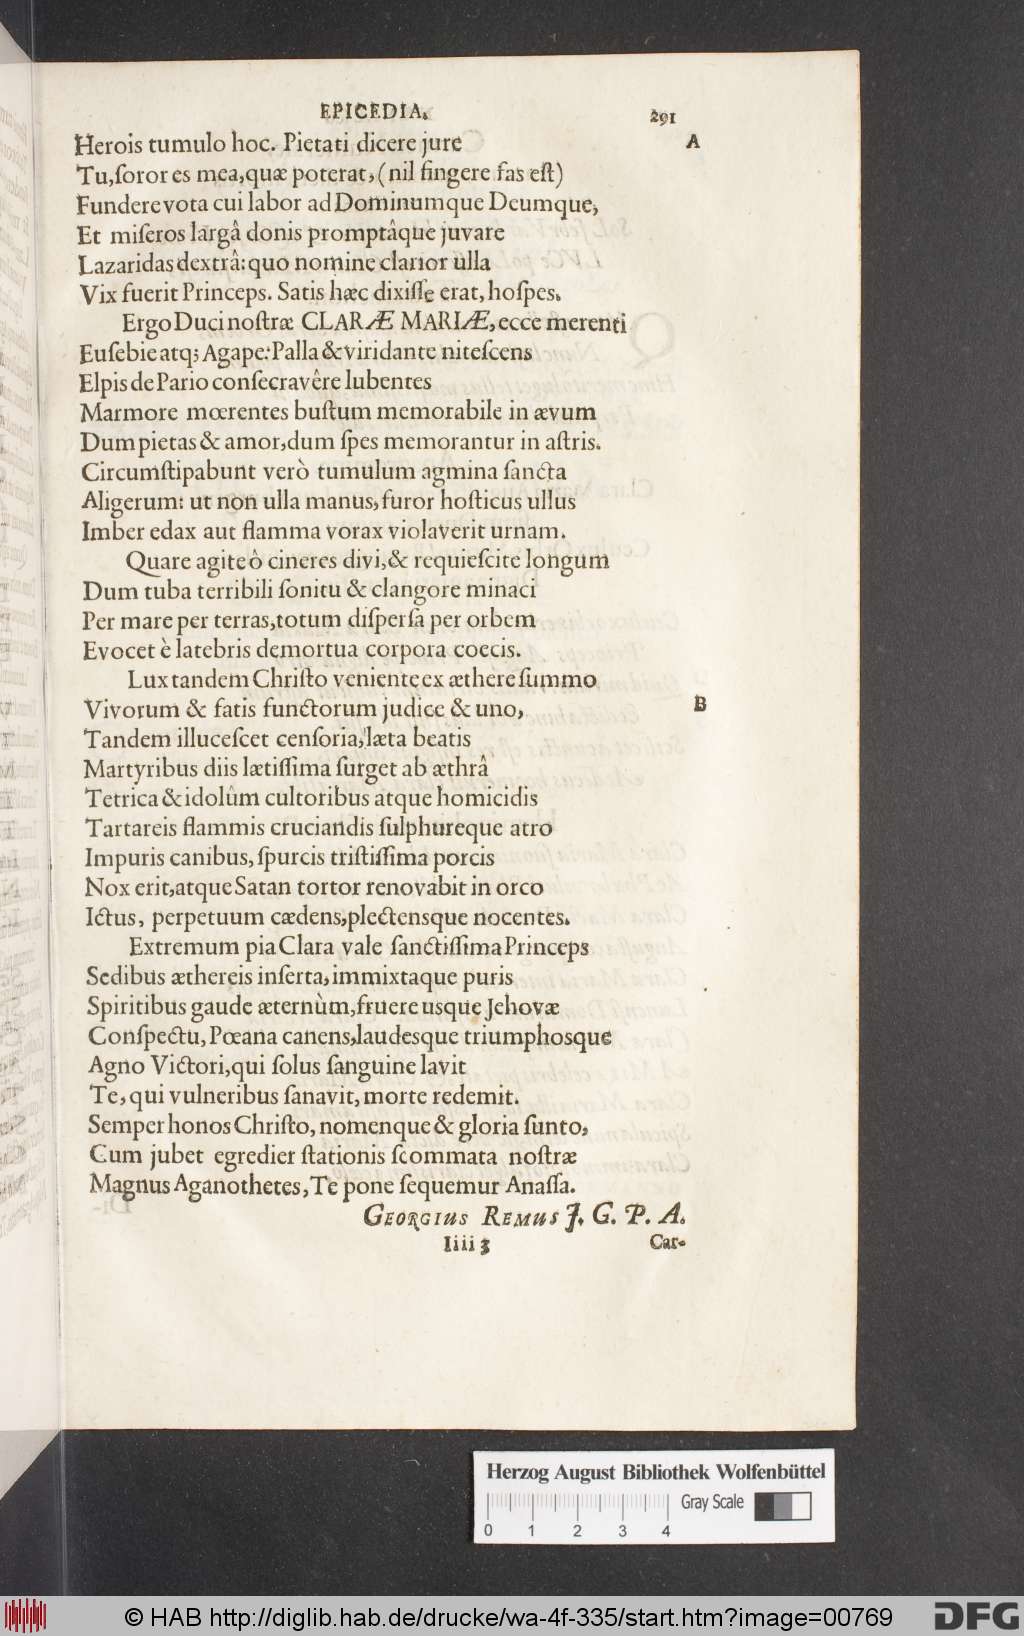 EPICEDIA. 291
Herois tumulo hoc. Pietati dicere jure A
Tu, ſoror es mea, quæ poterat, (nil fingere fas eſt)
Fundere vota cui labor ad Dominumque Deumque,
Et miſeros largâ donis promptâque juvare
Lazaridas dextrâ: quo nomine clarior ulla
Vix fuerit Princeps. Satis hæc dixiſſe erat, hoſpes.
Ergo Duci noſtræ CLARÆ MARIÆ, ecce merenti
Euſebie atq; Agape: Palla & viridante niteſcens
Elpis de Pario conſecravêre lubentes
Marmore mœrentes buſtum memorabile in ævum
Dum pietas & amor, dum ſpes memorantur in aſtris.
Circumſtipabunt verò tumulum agmina ſancta
Aligerum: ut non ulla manus, furor hoſticus ullus
Imber edax aut flamma vorax violaverit urnam.
Quare agite ô cineres divi, & requieſcite longum
Dum tuba terribili ſonitu & clangore minaci
Per mare per terras, totum diſperſa per orbem
Evocet è latebris demortua corpora coecis.
Lux tandem Chriſto veniente ex æthere ſummo
Vivorum & fatis functorum judice & uno, B
Tandem illuceſcet cenſoria, læta beatis
Martyribus diis lætiſſima ſurget ab æthrâ
Tetrica & idolûm cultoribus atque homicidis
Tartareis flammis cruciandis ſulphureque atro
Impuris canibus, ſpurcis triſtiſſima porcis
Nox erit, atque Satan tortor renovabit in orco
Ictus, perpetuum cædens, plectensque nocentes.
Extremum pia Clara vale ſanctiſſima Princeps
Sedibus æthereis inſerta, immixtaque puris
Spiritibus gaude æternùm, fruere usque Jehovæ
Conſpectu, Pœana canens, laudesque triumphosque
Agno Victori, qui ſolus ſanguine lavit
Te, qui vulneribus ſanavit, morte redemit.
Semper honos Chriſto, nomenque & gloria ſunto,
Cum jubet egredier ſtationis ſcommata noſtræ
Magnus Aganothetes, Te pone ſequemur Anaſſa.
GEORGIUS REMUS J. G. P. A.
Iiii 3 Car-
Herzog August Bibliothek Wolfenbüttel
Gray Scale
0 1 2 3 4
© HAB http://diglib.hab.de/drucke/wa-4f-335/start.htm?image=00769 DFG